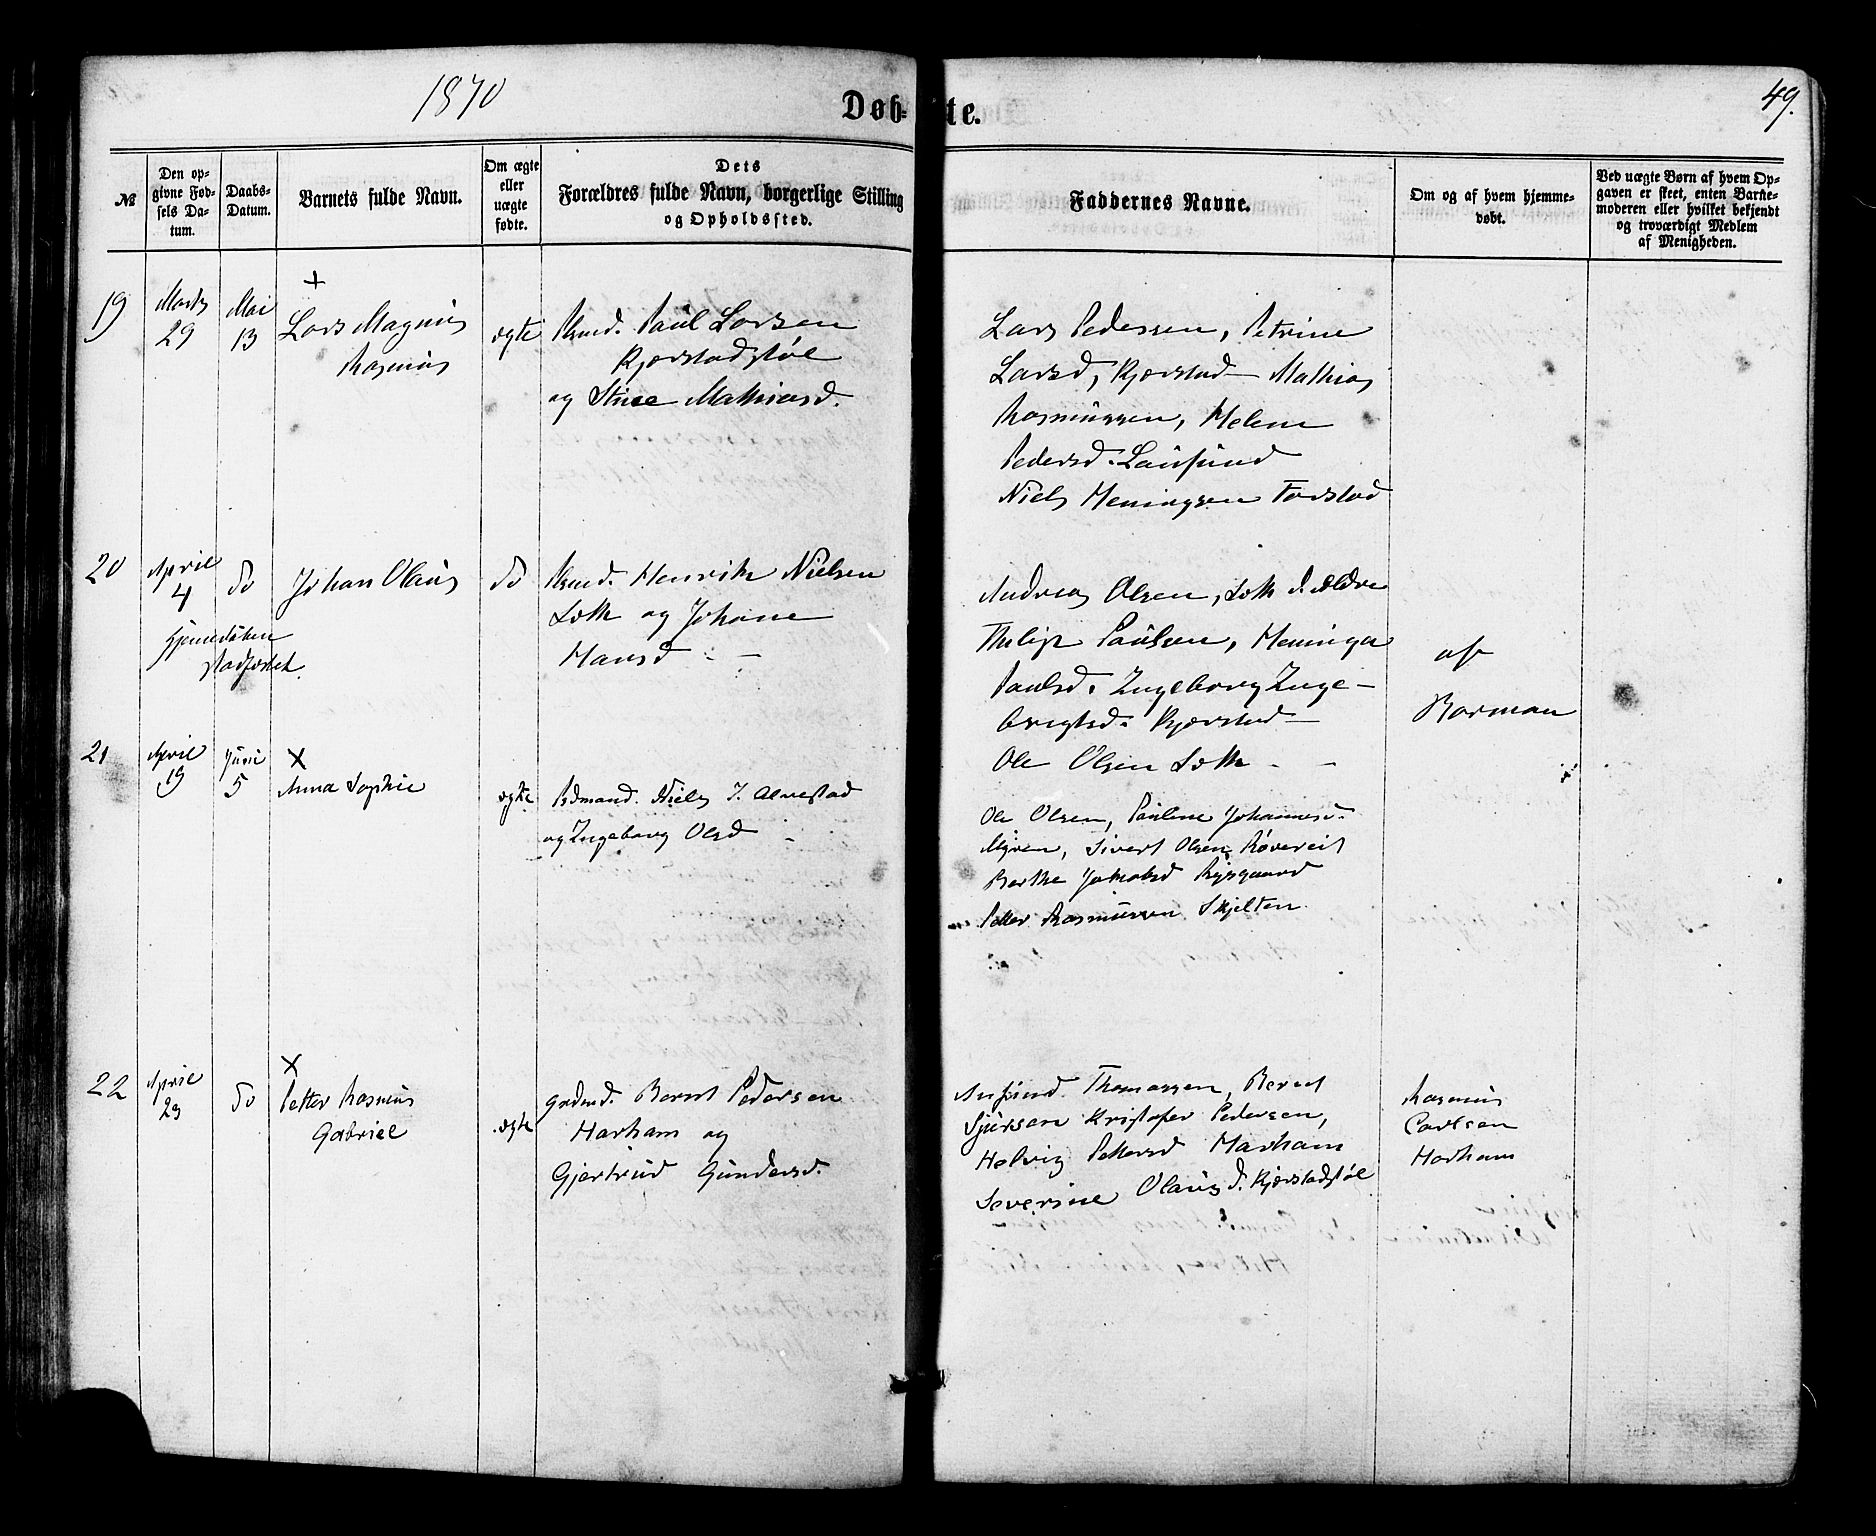 1870
Døb-te.
49.
№
Den opgivne Fødsels Datum.
Daabs-Datum.
Barnets fulde Navn.
Om ægte eller uægte fødte.
Dets Forældres fulde Navn, borgerlige Stilling og Opholdssted.
Faddernes Navne.
Om og af hvem hjemmedøbt.
Ved uægte Børn af hvem Opgaven er skeet, enten Barnemoderen eller hvilket bekjendt og troværdigt Medlem af Menigheden.
19
Marts 29
Mai 13
+
Lars Magnus
Rasmus
ægte
Paul Larsen
Kjærstadstøl
og Stine Mathiasd.
Lars Pedersen, Petrine
Larsd, Kjærstad - Mathias
Rasmussen, Helene
Pedersd. Lausund
Niels Henningsen Farstad
20
April 4
do
Johan Olaus
do
Henrik Nielsen
Søth og Johane
Hansd - -
Hjemmedåben
stadfæstet.
Andreas Olsen, Søth d. ældre
Philip Paulsen, Heninga
Paulsd. Ingeborg Inge-
brigtsd. Kjærstad -
Ole Olsen Søth - -
af
Borman
21
April 19
Juni 5
×
Anna Sophie
ægte
Niels J. Alvestad
og Ingeborg Olsd -
Ole Olsen, Pauline Johannesd.
Myren, Sivert Olsen, Røvereit
Berthe Jakobsd Rysgaard
Petter Rasmussen Skjelten.
22
April 23
do
×
Petter Rasmus
Gabriel
ægte
Gadmd. Bernt Pedersen
Harham og
Gjertrud Gundersd.
Anfind Thomassen, Bernt
Sjursen Kristofer Pedersen,
Helvig Pettersd Harham
Severine Olausd. Kjærstadstøl
Rasmus
Carlsen
Harham